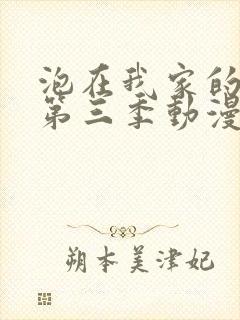 泡在我家的
第三季動漫
朔本美津妃